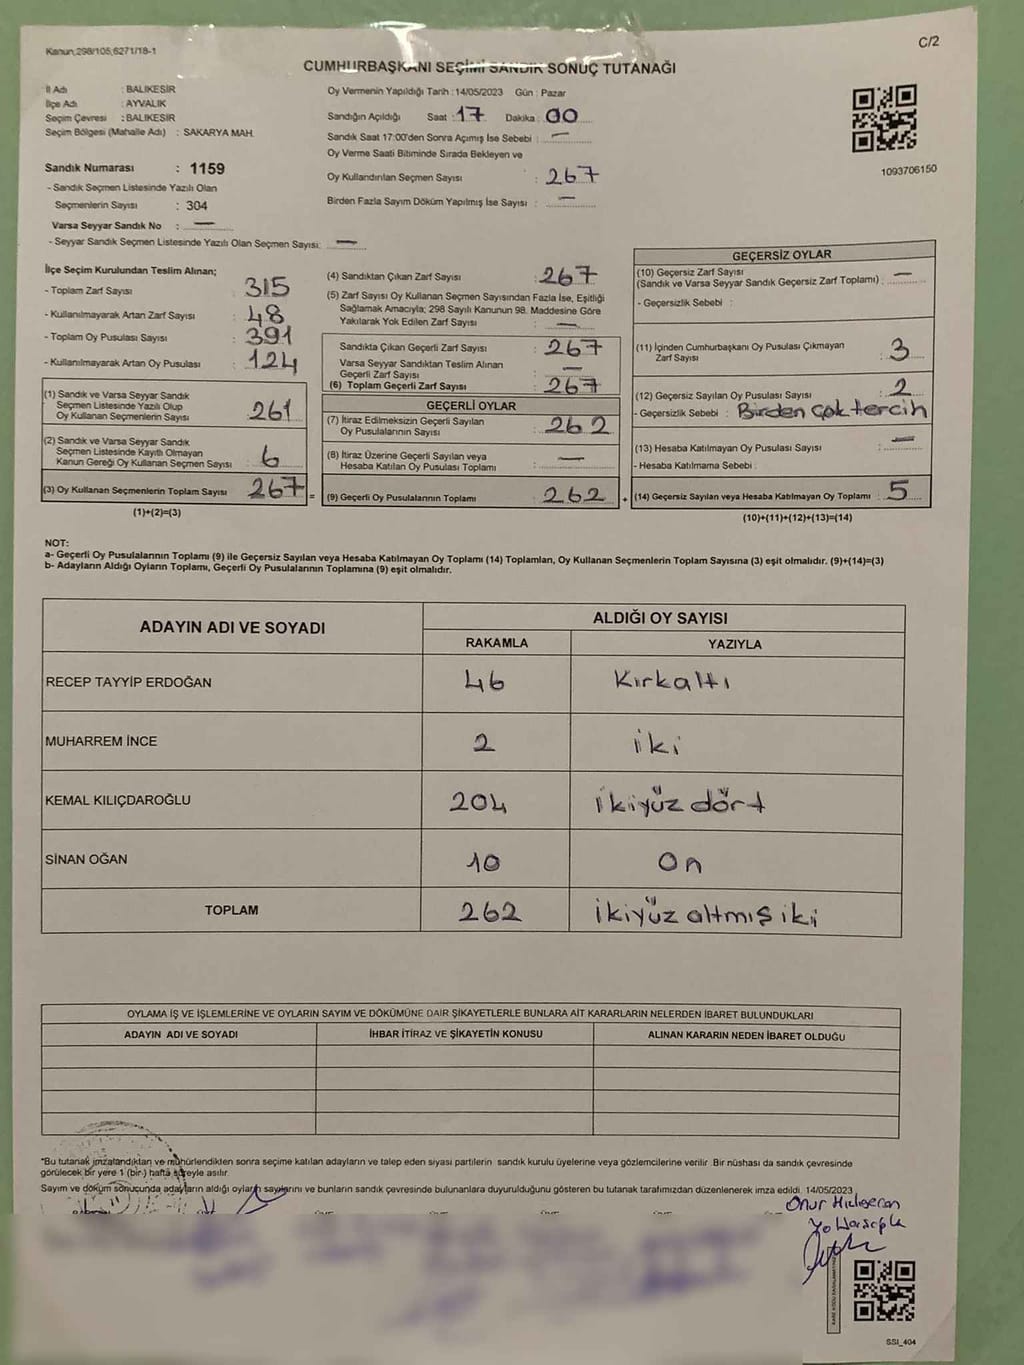 Kanun;298/105,6271/18-1
C/2
CUMHURBAŞKANI SEÇİMİ SANDIK SONUÇ TUTANAĞI
İl Adı : BALIKESİR
İlçe Adı : AYVALIK
Seçim Çevresi : BALIKESİR
Seçim Bölgesi (Mahalle Adı) : SAKARYA MAH.
Sandık Numarası : 1159
- Sandık Seçmen Listesinde Yazılı Olan
Seçmenlerin Sayısı : 304
Varsa Seyyar Sandık No : —
- Seyyar Sandık Seçmen Listesinde Yazılı Olan Seçmen Sayısı: —
Oy Vermenin Yapıldığı Tarih :14/05/2023 Gün : Pazar
Sandığın Açıldığı Saat : 17 Dakika : 00
Sandık Saat 17:00'den Sonra Açımış İse Sebebi : —
Oy Verme Saati Bitiminde Sırada Bekleyen ve
Oy Kullandırılan Seçmen Sayısı : 267
Birden Fazla Sayım Döküm Yapılmış İse Sayısı : —
1093706150
İlçe Seçim Kurulundan Teslim Alınan;
- Toplam Zarf Sayısı : 315
- Kullanılmayarak Artan Zarf Sayısı : 48
- Toplam Oy Pusulası Sayısı : 391
- Kullanılmayarak Artan Oy Pusulası : 124
(1) Sandık ve Varsa Seyyar Sandık
Seçmen Listesinde Yazılı Olup
Oy Kullanan Seçmenlerin Sayısı : 261
(2) Sandık ve Varsa Seyyar Sandık
Seçmen Listesinde Kayıtlı Olmayan
Kanun Gereği Oy Kullanan Seçmen Sayısı : 6
(3) Oy Kullanan Seçmenlerin Toplam Sayısı : 267 =
(1)+(2)=(3)
(4) Sandıktan Çıkan Zarf Sayısı : 267
(5) Zarf Sayısı Oy Kullanan Seçmen Sayısından Fazla İse, Eşitliği
Sağlamak Amacıyla; 298 Sayılı Kanunun 98. Maddesine Göre
Yakılarak Yok Edilen Zarf Sayısı : —
Sandıkta Çıkan Geçerli Zarf Sayısı : 267
Varsa Seyyar Sandıktan Teslim Alınan
Geçerli Zarf Sayısı : —
(6) Toplam Geçerli Zarf Sayısı : 267
GEÇERLİ OYLAR
(7) İtiraz Edilmeksizin Geçerli Sayılan
Oy Pusulalarının Sayısı : 262
(8) İtiraz Üzerine Geçerli Sayılan veya
Hesaba Katılan Oy Pusulası Toplamı : —
(9) Geçerli Oy Pusulalarının Toplamı : 262 +
GEÇERSİZ OYLAR
(10) Geçersiz Zarf Sayısı
(Sandık ve Varsa Seyyar Sandık Geçersiz Zarf Toplamı) : —
- Geçersizlik Sebebi :
(11) İçinden Cumhurbaşkanı Oy Pusulası Çıkmayan
Zarf Sayısı : 3
(12) Geçersiz Sayılan Oy Pusulası Sayısı : 2
- Geçersizlik Sebebi : Birden çok tercih
(13) Hesaba Katılmayan Oy Pusulası Sayısı : —
- Hesaba Katılmama Sebebi :
(14) Geçersiz Sayılan veya Hesaba Katılmayan Oy Toplamı : 5
(10)+(11)+(12)+(13)=(14)
NOT:
a- Geçerli Oy Pusulalarının Toplamı (9) ile Geçersiz Sayılan veya Hesaba Katılmayan Oy Toplamı (14) Toplamları, Oy Kullanan Seçmenlerin Toplam Sayısına (3) eşit olmalıdır. (9)+(14)=(3)
b- Adayların Aldığı Oyların Toplamı, Geçerli Oy Pusulalarının Toplamına (9) eşit olmalıdır.
ADAYIN ADI VE SOYADI
ALDIĞI OY SAYISI
RAKAMLA YAZIYLA
RECEP TAYYİP ERDOĞAN 46 Kırkaltı
MUHARREM İNCE 2 iki
KEMAL KILIÇDAROĞLU 204 ikiyüz dört
SİNAN OĞAN 10 On
TOPLAM 262 ikiyüz altmış iki
OYLAMA İŞ VE İŞLEMLERİNE VE OYLARIN SAYIM VE DÖKÜMÜNE DAİR ŞİKAYETLERLE BUNLARA AİT KARARLARIN NELERDEN İBARET BULUNDUKLARI
ADAYIN ADI VE SOYADI İHBAR İTİRAZ VE ŞİKAYETİN KONUSU ALINAN KARARIN NEDEN İBARET OLDUĞU
*Bu tutanak imzalandıktan ve mühürlendikten sonra seçime katılan adayların ve talep eden siyasi partilerin sandık kurulu üyelerine veya gözlemcilerine verilir. Bir nüshası da sandık çevresinde
görülecek bir yere 1 (bir ) hafta süreyle asılır.
Sayım ve döküm sonucunda adayların aldığı oyların sayılarını ve bunların sandık çevresinde bulunanlara duyurulduğunu gösteren bu tutanak tarafımızdan düzenlenerek imza edildi. 14/05/2023
Onur
SSI_404